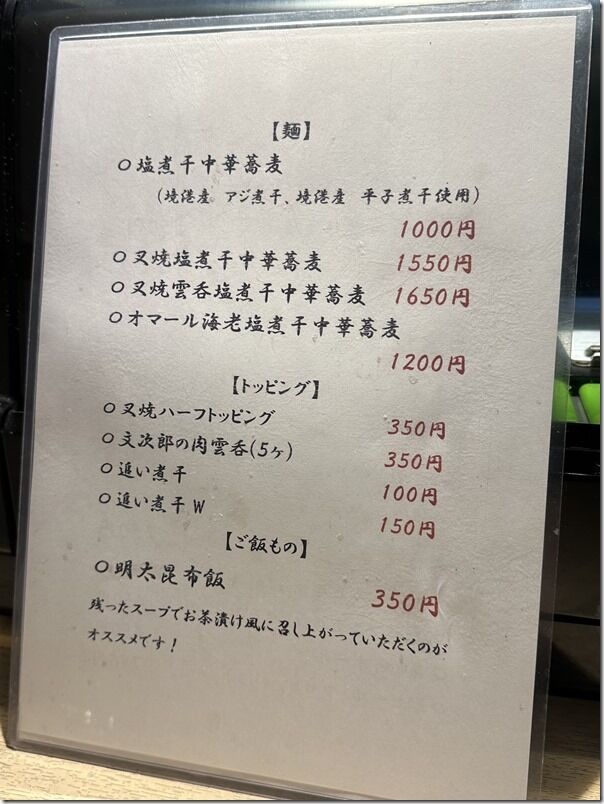 【麺】
○塩煮干中華蕎麦
(境港産 アジ煮干、境港産 平子煮干使用)
1000円
○叉焼塩煮干中華蕎麦 1550円
○叉焼雲呑塩煮干中華蕎麦 1650円
○オマール海老塩煮干中華蕎麦
1200円
【トッピング】
○叉焼ハーフトッピング 350円
○文次郎の肉雲呑(5ヶ) 350円
○追い煮干 100円
○追い煮干W 150円
【ご飯もの】
○明太昆布飯 350円
残ったスープでお茶漬け風に召し上がっていただくのが
オススメです！